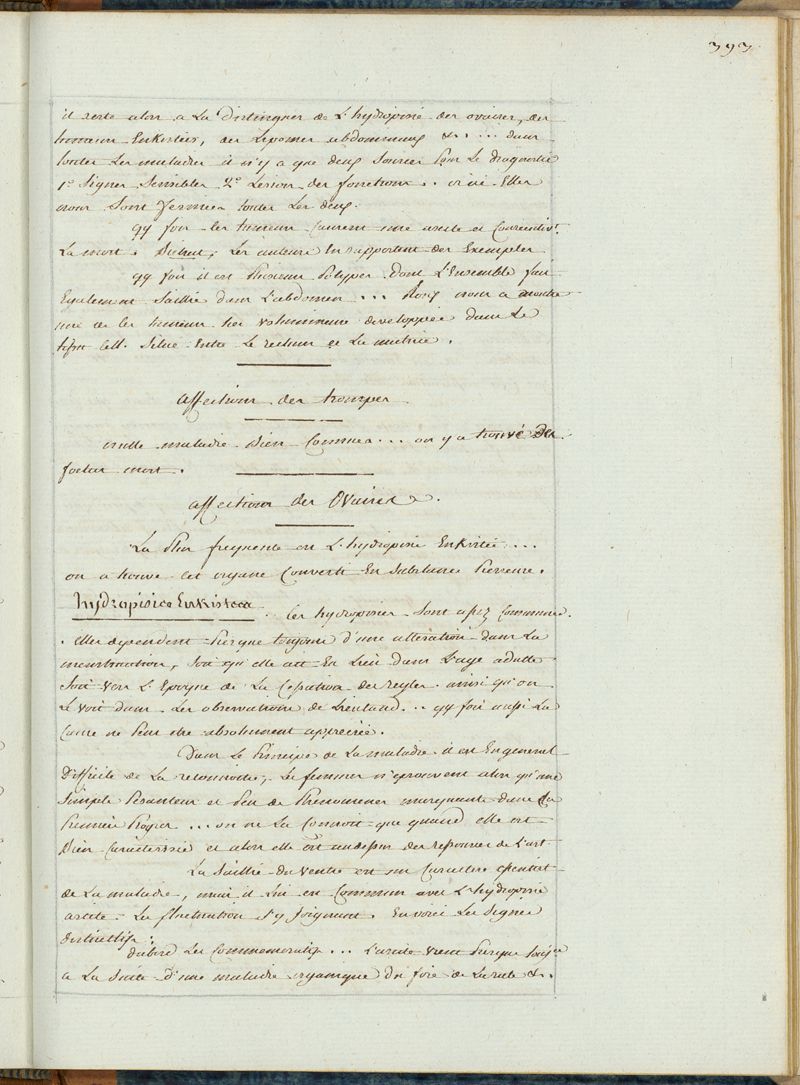 393
il reste alors a La Distinguer de L'hydropisie des ovaires, des
tumeurs Enkistées, des Lipomes abdominaux &. .... dans
toutes Les maladies il n'y a que deux Sources pour Le diagnostic
1º Signes Sensibles 2º Lesion des fonctions. ici Elles
nous sont fermées toutes Les deux.
qq fois les tumeurs Causent une ascite et Consecutivt.
La mort. Bichat, Les auteurs En rapportent des Exemples
qq fois il est plusieurs Polypes dont L'Ensemble fait
Egalement Saillie dans L'abdomen ... Roux nous a montré
une de ces tumeurs tres volumineuse developpée dans Le
tissu cell. Situé Entre Le rectum et La matrice.
affections des trompes
nulle maladie bien Connue ... on y a trouvé des
foetus mort.
affections des Ovaires.
La Plus frequente est L'hydropisie Enkistée ...
on a trouvé cet organe Converti En Substance Pierreuse.
hydropisies Enkistees. Ces hydropisies sont assez Communes.
. elles dependent presque toujours d'une alteration dans La
menstruation, soit qu'elle ait Eu Lieu dans L'age adulte
soit vers L'Epoque de La Cessation des regles. ainsi qu'on
Le voit dans Les observations de Lieutaud. .. qq fois aussi La
Cause ne Peut être absolument appreciée.
Dans Le Principe de La maladie il est En general
Difficile de La reconnoitre, Les femmes n'eprouvent alors qu'une
Simple Pesanteur et Peu de Phenomenes marquants dans Ses
Premiers Progres ... on ne La Connoit que quand elle est
Bien Caracterisée et alors elle est audessus des ressources de L'art
La Saillie du ventre est un Caractere
de La maladie, mais il Lui est Commun avec L'hydropisie
ascite. La fluctuation S'y Joignant. En voici Les Signes
distinctifs:
dabord Les Commemoratifs ... L'ascite vient Presque touj.
a La Suite d'une maladie organique du foie de La rate &.